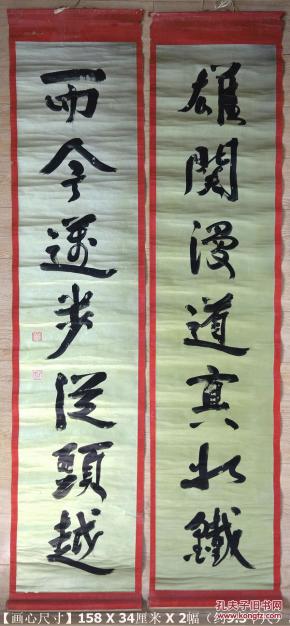 雄關漫道真如鐵
而今邁步從頭越
【画心尺寸】158 X 34厘米 X 2幅
孔夫子旧书网